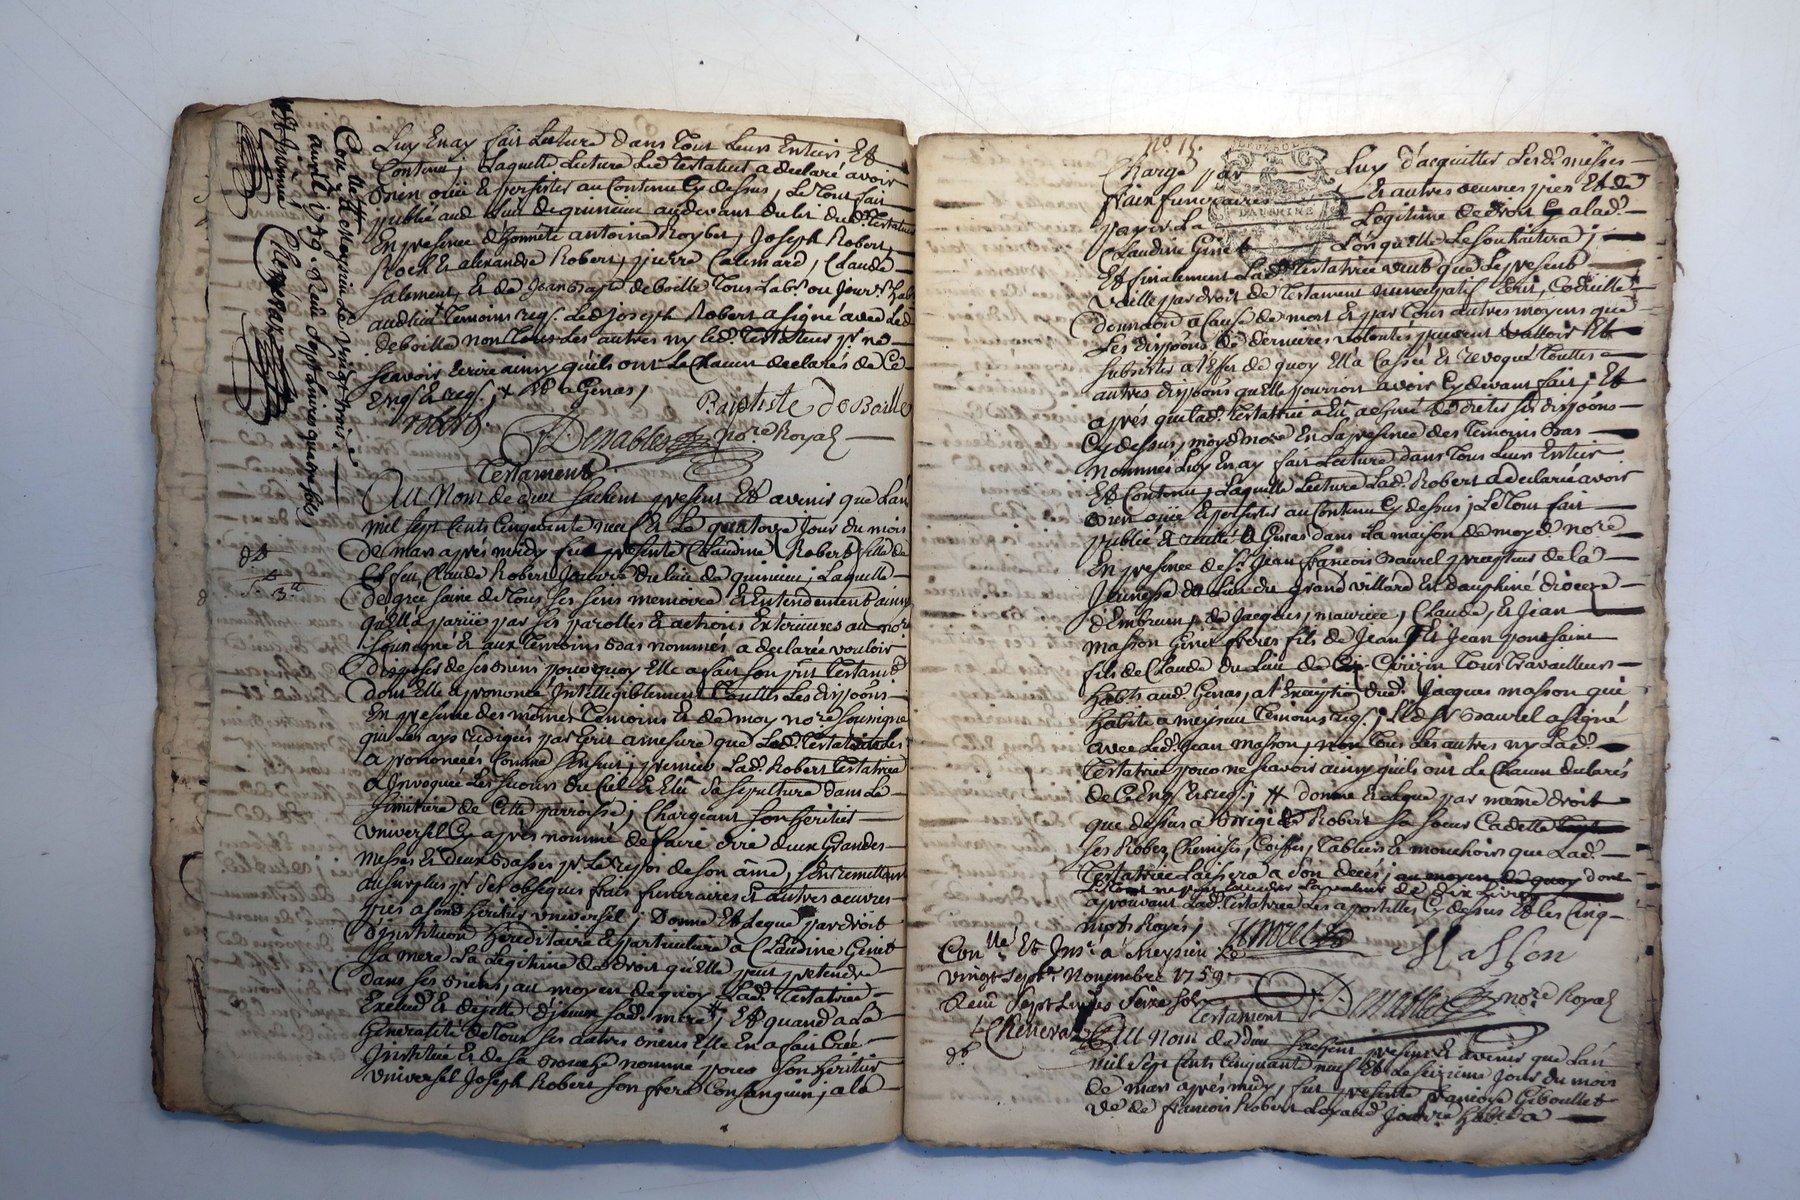 Luy En ay fait Lecture dans tout Leurs Entiers, Et
Contenu, Laquelle Lecture Led Testateur a declaré avoir
Bien oüie Et persister au Contenu Cy dessus, Le tout fait
publié aud Lieu de quincieu audevant du lit dud Testateur
En presence d'honnête antoine Roybet, Joseph Robert,
Roch Et alexandre Robert, pierre Calemard, Claude
Salement, Et de Jean Bapte deboille tous Labrs ou Jourrs habts
aud lieu temoins reqs. Led Joseph Robert a signé avec Led
deboille non tous Les autres ny led. Testateur pr ne
Scavoir Ecrire ainsy quils ont Le Chacun declarés de Ce
Enqs Et reqs. a Genas,
Baptiste de Boille
robert.
Denable nore Royal
Conllé Et
avril 1759. Reçu sept livres quatre sols
Cheneval
Testament
Au Nom de dieu Sachent presents Et avenir que L'an
mil Sept Cents Cinquante neuf Et Le quatorze Jour du mois
De mars aprés midy fut presente Claudine Robert fille de
feu Claude Robert Jouvre du lieu de quincieu, Laquelle
De gré Saine de tous Ses Sens memoire Et Entendement ainsy
quelle a parüe par Ses parolles Et actions Exterieures au nore
Soussigné Et aux temoins Bas nommés a declarée vouloir
Disposer de Ses Biens pourquoy Elle a fait Son prnt Testamt
Dont Elle a prononcé Intelligiblement toutes Les dispoons
En presence des mêmes temoins Et de moy nore Soussigné
qui Les ays redigées par Ecrit amesure que Lad. Testatrice les
a prononcées Comme Sensuit, premier Lad. Robert Testatrice
a Invoquée Les Secours du Ciel Et Elû Sa Sepulture dans Le
Simitiere de Cette parroisse, Chargeant Son heritier
universel Cy aprés nommé de faire dire deux Grandes
messes Et deux Basses pr Le repos de son âme, Sen remettant
au Surplus pr Ses obseques frais funeraires Et autres oeuvres
pies a Sond heritier universel, Donne Et Legue par droit
d'Institution hereditaire Et particuliere a Claudine Ginet
Sa mere La Legitime de droit qu'elle peut pretendre
dans Ses Biens, au moyen de quoy Lad. Testatrice
Exclud Et dejette d'Iceux Sad. mere, Et quand a La
Generalité de tous Ses autres Biens Elle En a fait Cree
Instituée Et de Sa Bouche nommé pour Son heritier
universel Joseph Robert Son frere Consanguin, a la
No. 15.
DAUPHINE
Charge par Luy d'acquitter Lesd. messes
frais funeraires Et autres oeuvres pies Et de
payer La Legitime de droit a lad.
Claudine Ginet Lorsquelle Le Souhaittera,
Et finalement Lad Testatrice veut que Le present
vaille par droit de Testament nuncupatif Ecrit, Codicille
donnaon a Cause de mort Et par tous autres moyens que
Les dispoons de dernieres volontés peuvent valloir Et
Subsister a l'Effet de quoy Ell'a Cassé Et revoqué touttes
autres dispoons quelle pourroit avoir Cy devant fait, Et
aprés que lad. Testatrice a Eû achevé de dicter Ses dispoons
Cy dessus, moyd nore En La presence des temoins Bas
Nommés Luy En ay fait Lecture dans tous Leurs Entiers
Et Contenu, Laquelle Lecture Lad. Robert a declarée avoir
Bien oüie Et persister au Contenu Cy dessus, Le tout fait
publié Et recité a Genas dans La maison de moyd. nore
En presence de Sr Jean francois Baurel precepteur de la
Jeunesse du Lieu du Grand villard En dauphiné dioceze
d'Embrun, de Jacques, maurice, Claude, Et Jean
masson Ginet freres fils de Jean, Et Jean ponsaint
fils de Claude du Lieu de tous travailleurs
habts aud. Genas, a l'Exception dud. Jacques masson qui
habite a meysieu temoins reqs, Led Sr Baurel a signé
avec Led. Jean masson, non tous Les autres ny Lad.
Testatrice pour ne Scavoir ainsy qu'ils ont Le Chacun declarés
de Ce Enqs Et reqs, donne Et Legue par même droit
que dessus a Brigide Robert Sa Soeur Cadette
Ses Robes, Chemises, Coiffes, Tabliers Et mouchoirs que Lad.
Testatrice Laissera a Son decés, au moyen de quoy dont
de dix Livres
aprouvant Lad. Testatrice Les apostilles Cy dessus Et les Cinq
mots Royés,
Masson
Conllé Et Insé a Meysieu Le
vingt Sept Novembre 1759
Reçu Sept Livres Seize Sols
Cheneval
Denable nore Royal
Testament
Au Nom de dieu Sachent presents Et avenir que L'an
mil Sept Cents Cinquante neuf Et Le Seizieme Jour du mois
de mars aprés midy, fut presente francoise Giboullet
ve de francois Robert